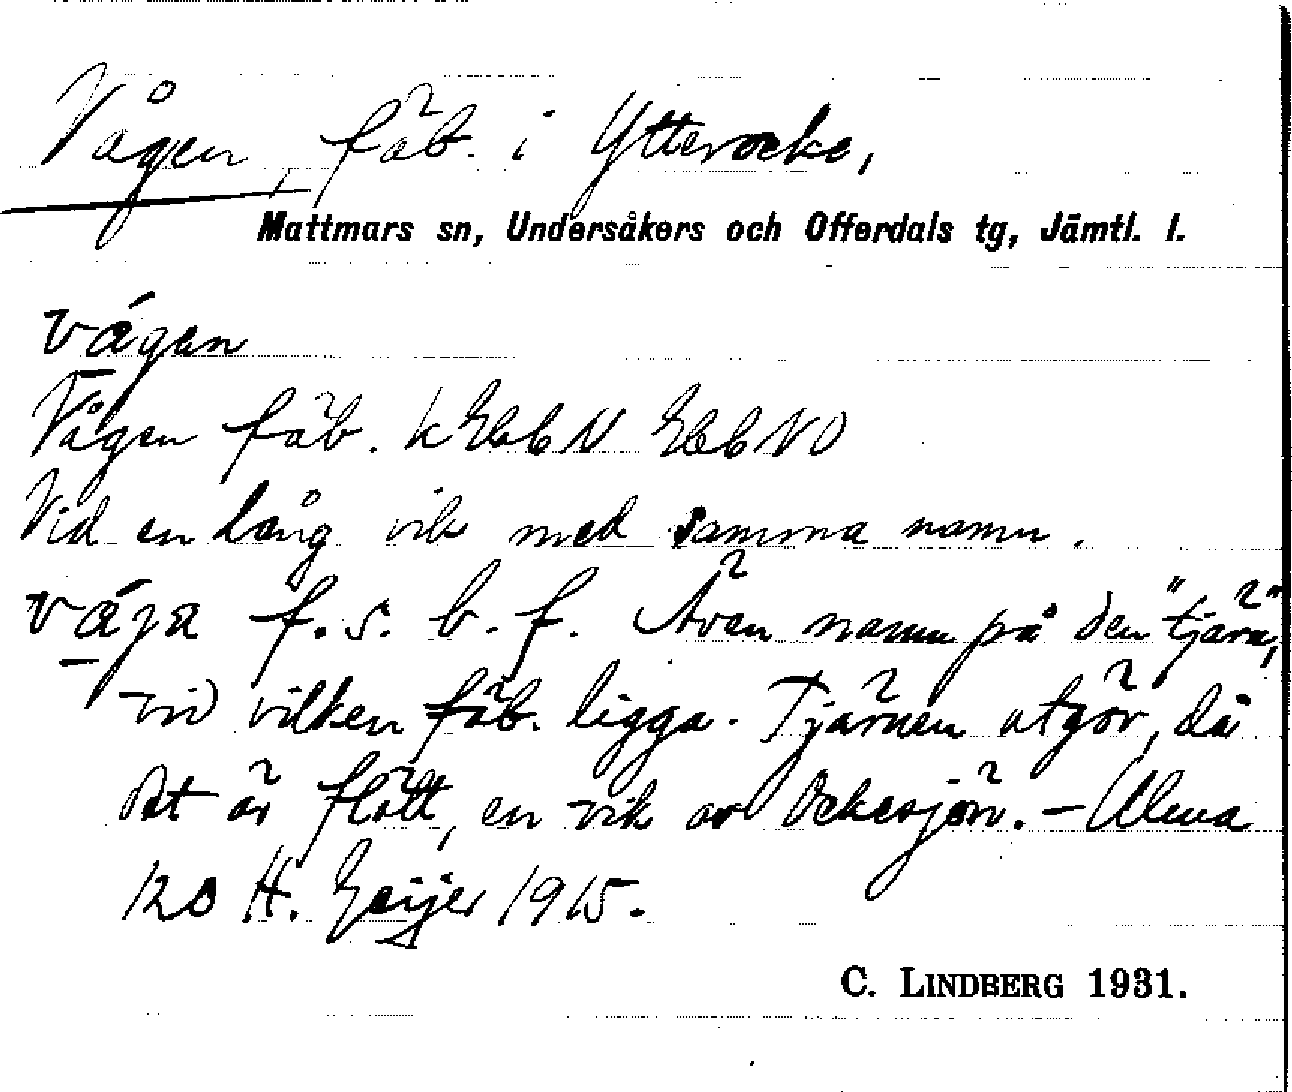 Vågen, fäb. i Ytterocke,
Mattmars sn, Undersåkers och Offerdals tg, Jämtl. l.
vágan
Vågen fäb. k Ebb N Ebb NO
Vid en lång vik med samma namn.
f. s. b. f. Även namn på den "tjärn",
vid vilken fäb. ligga. Tjärnen utgör, då
det är flött, en vik av Ockesjön. –
120 H. Geijer 1915.
C. LINDBERG 1931.